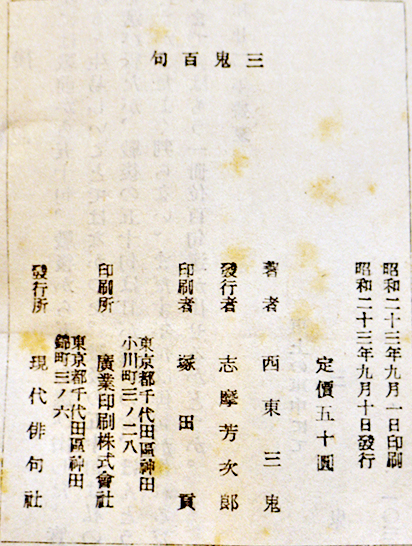 三鬼百句
昭和二十三年九月一日印刷
昭和二十三年九月十日發行
定價五十圓
著者 西東三鬼
發行者 志摩芳次郎
印刷者 塚田貢
東京都千代田區神田
小川町三ノ二八
印刷所 廣業印刷株式會社
東京都千代田區神田
錦町三ノ六
發行所 現代俳句社